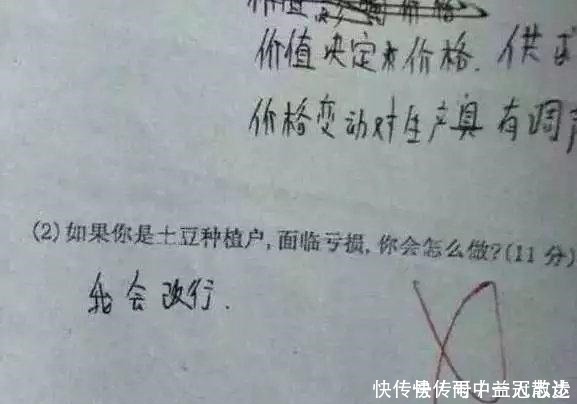 价值决定价格. 供求
价格变动对生产具有调
(2)如果你是土豆种植户,面临亏损,你会怎么做?(11分)
我会改行.
快传